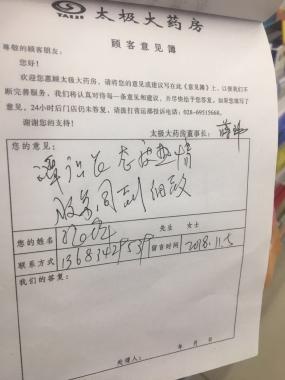 TAIJI
太极大药房
顾客意见簿
尊敬的顾客朋友：
您好！
欢迎您惠顾太极大药房，请将您的意见或建议写在此《意见簿》上，以便我们不
断完善服务，我们将认真对待每一条意见和建议，并尽快给予您答复。如果您填写了
意见，24小时后门店仍未答复，请拨打营运部投诉电话：028-69515668。
谢谢您的支持！
太极大药房董事长：
您的意见：
态度热情
服务周到 细致
您的姓名
先生 女士
联系方式 13683429539 留言时间 2018.11.5
我们的答复：
年 月 日
处理人：